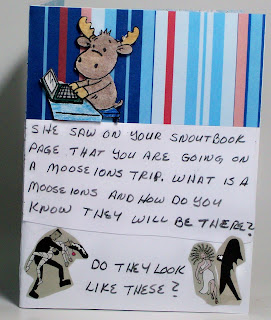 SHE SAW ON YOUR SNOUTBOOK
PAGE THAT YOU ARE GOING ON
A MOOSEIONS TRIP. WHAT IS A
MOOSEIONS AND HOW DO YOU
KNOW THEY WILL BE THERE?
DO THEY LOOK
LIKE THESE?